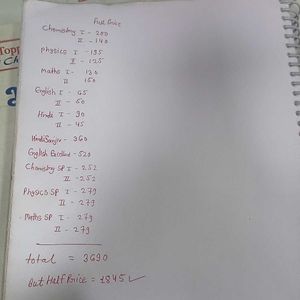 Topp
Ch
Full Price
Chemistry I - 200
II - 140
Physics I - 195
II - 125
Maths I - 130
II 150
English I - 65
II - 50
Hindi I - 90
II - 45
Hindi Sanjiv - 360
English Excellent - 520
Chemistry SP I - 252
II - 252
Physics SP I - 279
II - 279
Maths SP I - 279
II - 279
total = 3690
But Half Price = 1845 ✓